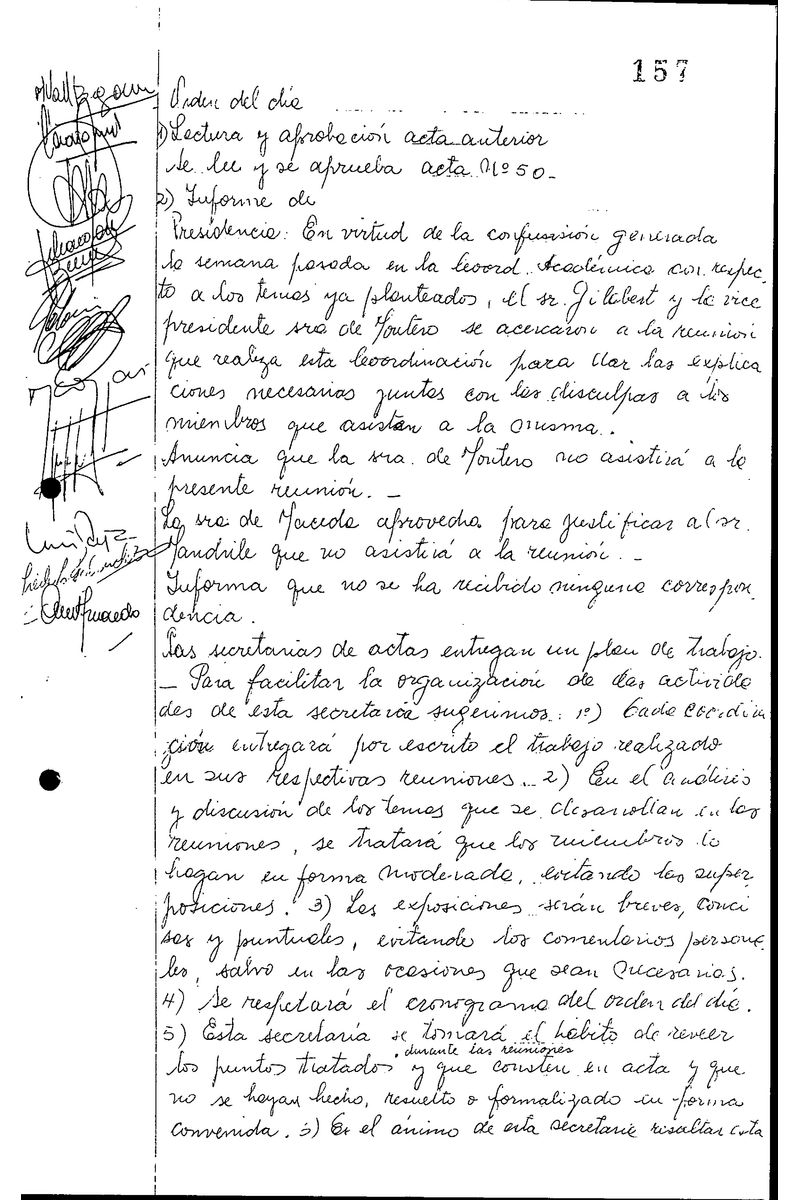 157
Orden del día
1) Lectura y aprobación acta anterior
se lee y se aprueba acta Nº 50 -
2) Informe de
Presidencia: En virtud de la confusión generada
la semana pasada en la Coord. Académica con respec-
to a los temas ya planteados, el sr. Gilabert y la vice
presidente sra de Montero se acercaron a la reunión
que realiza esta Coordinación para dar las explica
ciones necesarias juntas con las disculpas a los
miembros que asistan a la misma.
Anuncia que la sra. de Montero no asistirá a la
presente reunión. -
La sra de Maceda aprovecha para justificar al sr.
Mandrile que no asistirá a la reunión. -
Informa que no se ha recibido ninguna correspon-
dencia.
Las secretarias de actas entregan un plan de trabajo.
- Para facilitar la organización de las activida
des de esta secretaría sugerimos: 1º) Cada coordina
ción entregará por escrito el trabajo realizado
en sus respectivas reuniones. 2) En el análisis
y discusión de los temas que se desarrollan en las
reuniones, se tratará que los miembros lo
hagan en forma moderada, evitando las super
posiciones. 3) Las exposiciones serán breves, conci
sas y puntuales, evitando los comentarios persona-
les, salvo en las ocasiones que sean necesarias.
4) Se respetará el cronograma del orden del día.
5) Esta secretaría se tomará el hábito de reveer
los puntos tratados durante las reuniones y que consten en acta y que
no se hayan hecho, resuelto o formalizado en forma
convenida. 5) Es el ánimo de esta secretaría resaltar esta